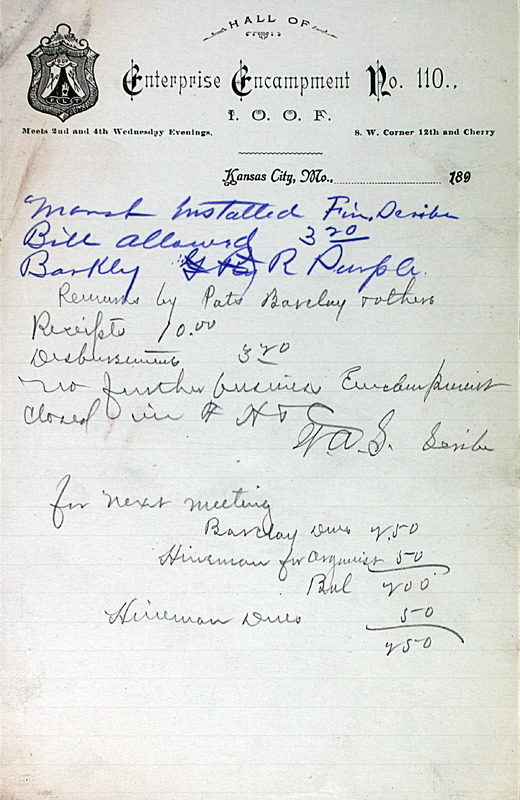 HALL OF
Enterprise Encampment No. 110.,
I. O. O. F.
Meets 2nd and 4th Wednesday Evenings.
S. W. Corner 12th and Cherry
Kansas City, Mo., 189
Marsh Installed Fin. Scribe
Bill allowed 3 20
Barkley R Purple.
Remarks by Pats Barclay & others
Receipts 10.00
Disbursements 3 20
No further business Encampment
closed in F H &
W A S. Scribe
for next meeting
Barclay Dues 2.50
Hineman for Organist 50
Bal 2 00
Hineman Dues 50
2 50